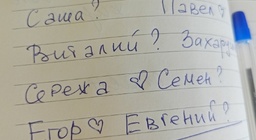 Саша? Павел?
Виталий? Захар
Сережа ♡ Семен?
Егор ♡ Евгений?